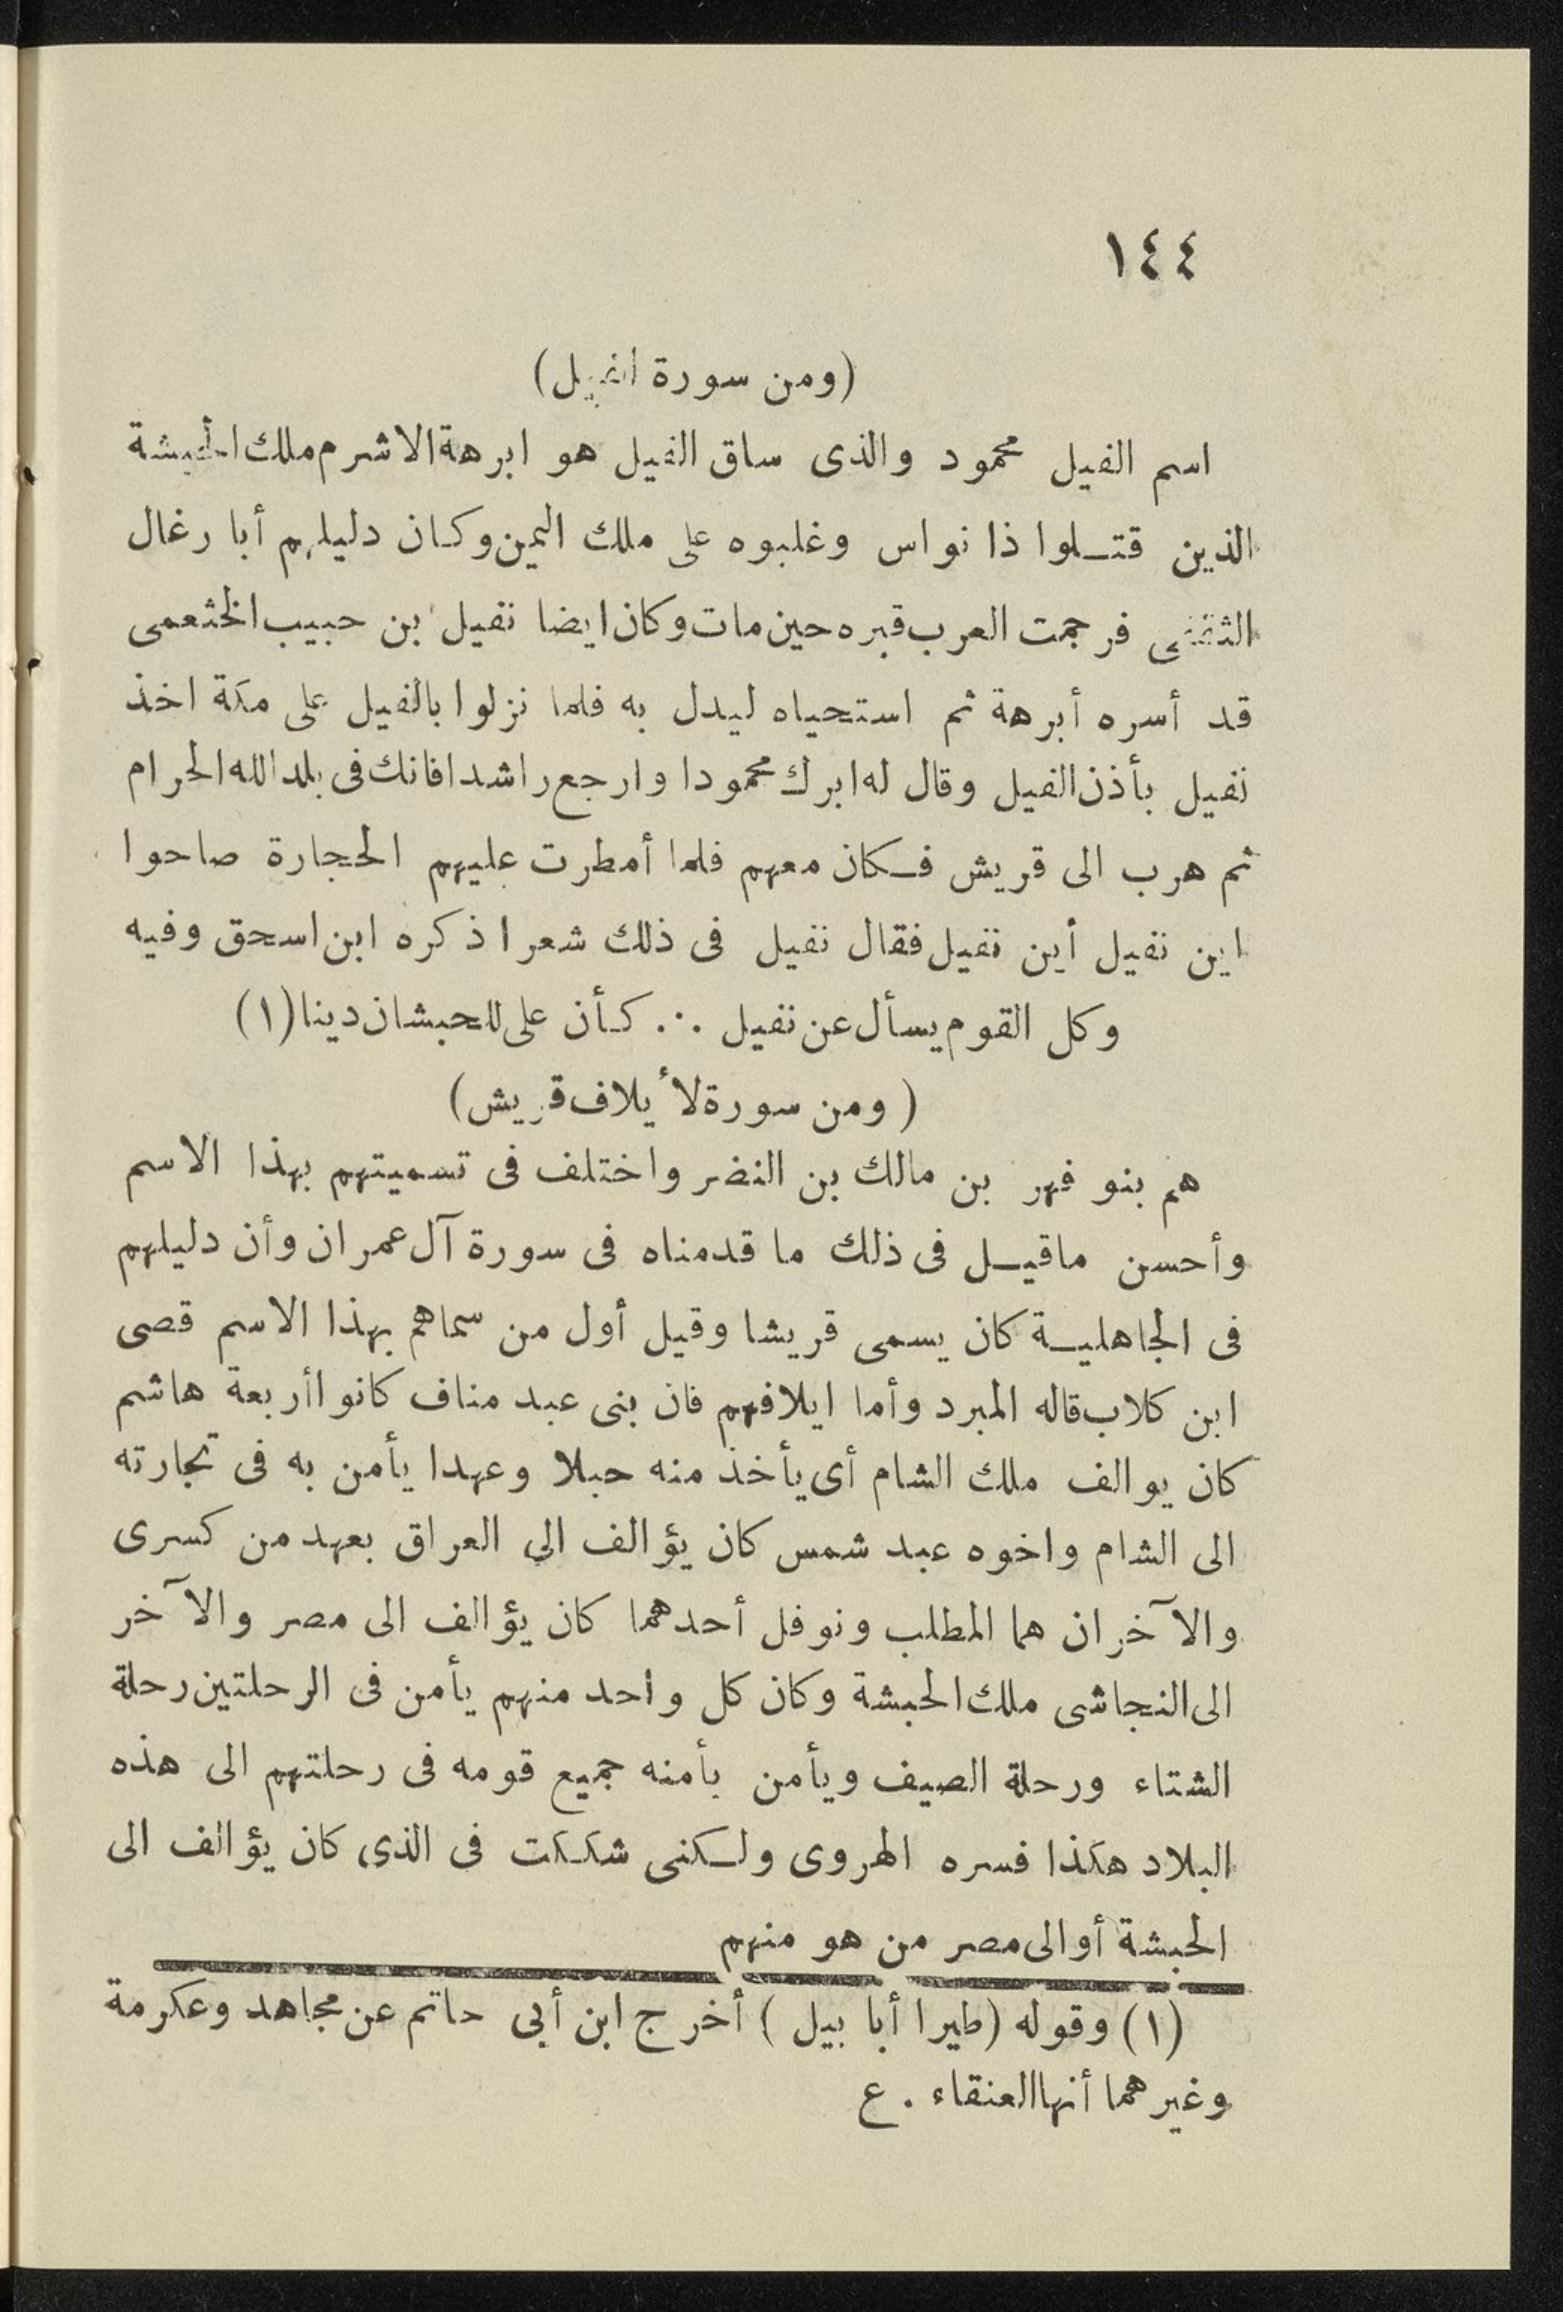 ١٤٤
(ومن سورة الفيل)
اسم الفيل محمود والذى ساق الفيل هو ابرهة الاشرم ملك الحبشة
الذين قتلوا ذا نواس وغلبوه على ملك اليمن وكان دليلهم أبا رغال
الثقفى فرجمت العرب قبره حين مات وكان ايضا نفيل بن حبيب الخثعمى
قد أسره أبرهة ثم استحياه ليدل به فلما نزلوا بالفيل على مكة اخذ
نفيل بأذن الفيل وقال له ابرك محمودا وارجع راشدا فانك فى بلد الله الحرام
ثم هرب الى قريش فكان معهم فلما أمطرت عليهم الحجارة صاحوا
اين نفيل أين نفيل فقال نفيل فى ذلك شعرا ذكره ابن اسحق وفيه
وكل القوم يسأل عن نفيل ∴ كأن على للحبشان دينا (١)
(ومن سورة لأيلاف قريش)
هم بنو فهر بن مالك بن النضر واختلف فى تسميتهم بهذا الاسم
وأحسن ماقيل فى ذلك ما قدمناه فى سورة آل عمران وأن دليلهم
فى الجاهلية كان يسمى قريشا وقيل أول من سماهم بهذا الاسم قصى
ابن كلاب قاله المبرد وأما ايلافهم فان بنى عبد مناف كانوا أربعة هاشم
كان يوالف ملك الشام أى يأخذ منه حبلا وعهدا يأمن به فى تجارته
الى الشام واخوه عبد شمس كان يؤالف الي العراق بعهد من كسرى
والآخران هما المطلب ونوفل أحدهما كان يؤالف الى مصر والآخر
الى النجاشى ملك الحبشة وكان كل واحد منهم يأمن فى الرحلتين رحلة
الشتاء ورحلة الصيف ويأمن بأمنه جميع قومه فى رحلتهم الى هذه
البلاد هكذا فسره الهروى ولكنى شككت فى الذى كان يؤالف الى
الحبشة أو الى مصر من هو منهم
(١) وقوله (طيرا أبا بيل) أخرج ابن أبى حاتم عن مجاهد وعكرمة
وغيرهما أنها العنقاء . ع